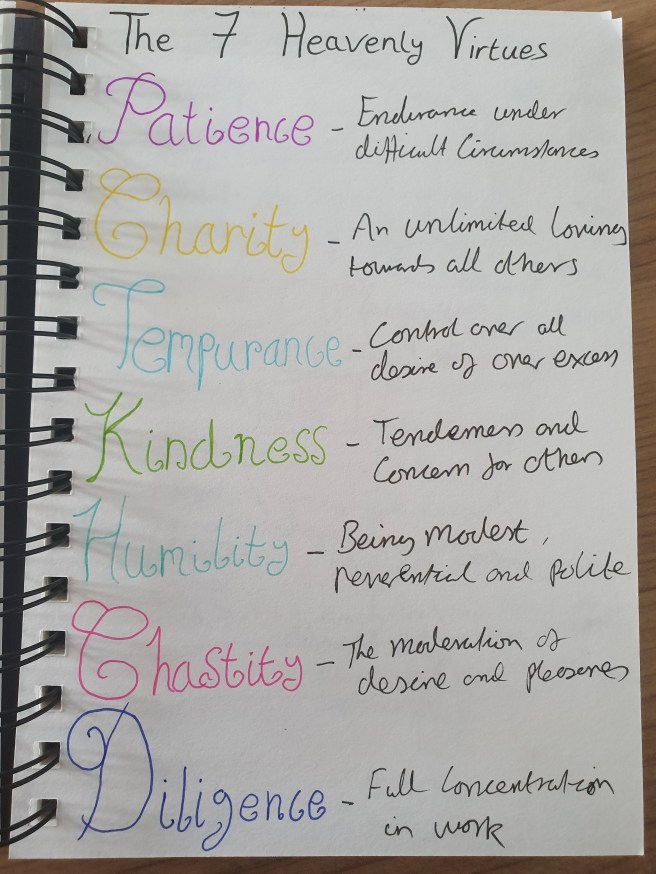 The 7 Heavenly Virtues
Patience - Endurance under
difficult Circumstances
Charity - An unlimited loving
towards all others
Tempurance - Control over all
desire of over excess
Kindness - Tenderness and
Concern for others
Humility - Being modest,
reverential and polite
Chastity - The moderation of
desire and pleasures
Diligence - Full Concentration
in work